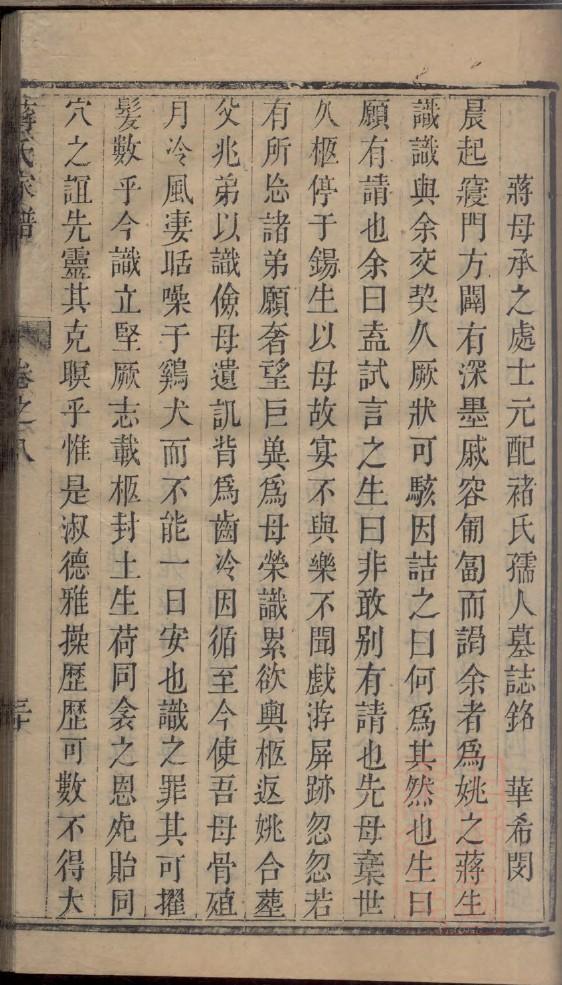 蔣母承之處士元配褚氏孺人墓誌銘　華希閔
晨起寢門方闢有深墨戚容匍匐而謁余者為姚之蔣生
識識與余交契久厥狀可駭因詰之曰何為其然也生曰
願有請也余曰盍試言之生曰非敢別有請也先母棄世
久柩停于錫生以母故宴不與樂不聞戲游屏跡忽忽若
有所㤀諸弟願奢望巨兾為母榮識累欲輿柩返姚合塟
父兆弟以識儉母遺訊背為齒冷因循至今使吾母骨殖
月冷風淒聒噪于鷄犬而不能一日安也識之罪其可擢
髮數乎今識立堅厥志載柩封土生荷同衾之恩死貽同
穴之誼先靈其克瞑乎惟是淑德雅操歷歷可數不得大
蔣氏家譜
卷之八
三十